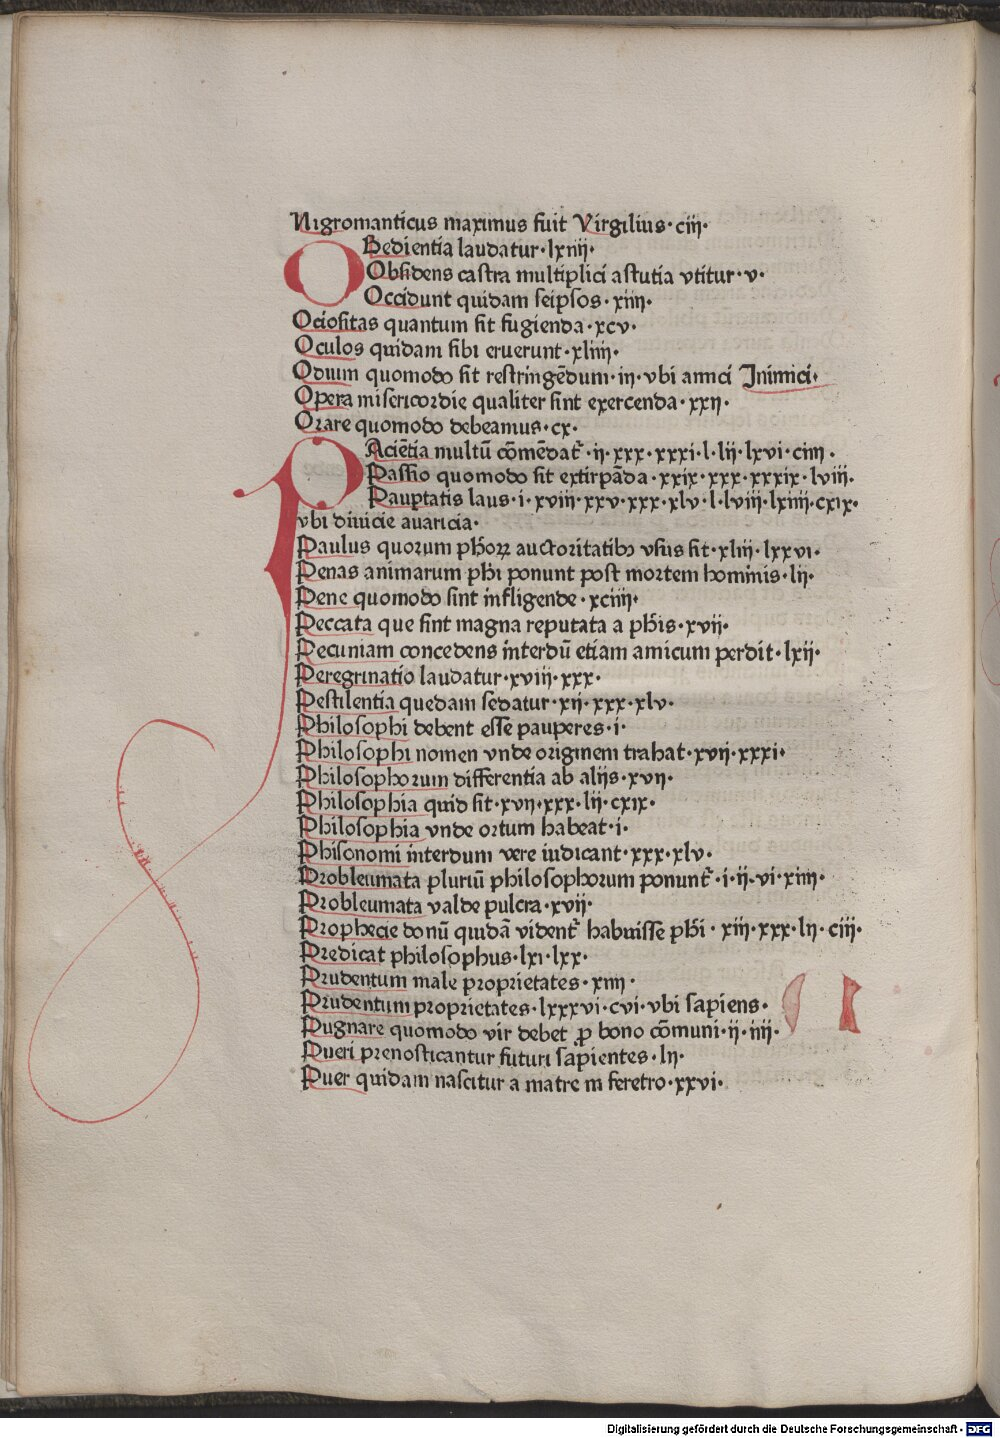 Nigromanticus maximus fuit Virgilius·ciij·
OBedientia laudatur·lxiiij·
Obsidens castra multiplici astutia vtitur·v·
Occidunt quidam seipsos·xiiij·
Ociositas quantum sit fugienda·xcv·
Oculos quidam sibi eruerunt·xliiij·
Odium quomodo sit restringēdum·iij·vbi amici Inimici·
Opera misericordie qualiter sint exercenda·xxij·
Orare quomodo debeamus·cx·
PAciētia multū cōmēdat᷑·ij·xxx·xxxi·l·lij·lxvi·ciiij·
Passio quomodo sit extirpāda·xxix·xxx·xxxix·lviij·
Paupertatis laus·i·xviij·xxv·xxx·xlv·l·lviij·lxiiij·cxix·
vbi diuicie auaricia·
Paulus quorum ph̄oꝝ auctoritatibꝰ vsus sit·xliij·lxxvi·
Penas animarum ph̄i ponunt post mortem hominis·lij·
Pene quomodo sint infligende·xciiij·
Peccata que sint magna reputata a ph̄is·xvij·
Pecuniam concedens interdū etiam amicum perdit·lxij·
Peregrinatio laudatur·xviij·xxx·
Pestilentia quedam sedatur·xij·xxx·xlv·
Philosophi debent esse pauperes·i·
Philosophi nomen vnde originem trahat·xvij·xxxi·
Philosophorum differentia ab alijs·xvij·
Philosophia quid sit·xvij·xxx·lij·cxix·
Philosophia vnde ortum habeat·i·
Phisonomi interdum vere iudicant·xxx·xlv·
Probleumata pluriū philosophorum ponunt᷑·i·ij·vi·xiiij·
Probleumata valde pulcra·xvij·
Prophecie donū quidā vident᷑ habuisse ph̄i·xiij·xxx·lij·ciij·
Predicat philosophus·lxi·lxx·
Prudentum male proprietates·xiiij·
Prudentum proprietates·lxxxvi·cvi·vbi sapiens·
Pugnare quomodo vir debet ꝓ bono cōmuni·ij·iiij·
Pueri prenosticantur futuri sapientes·lij·
Puer quidam nascitur a matre in feretro·xxvi·
Digitalisierung gefördert durch die Deutsche Forschungsgemeinschaft - DFG